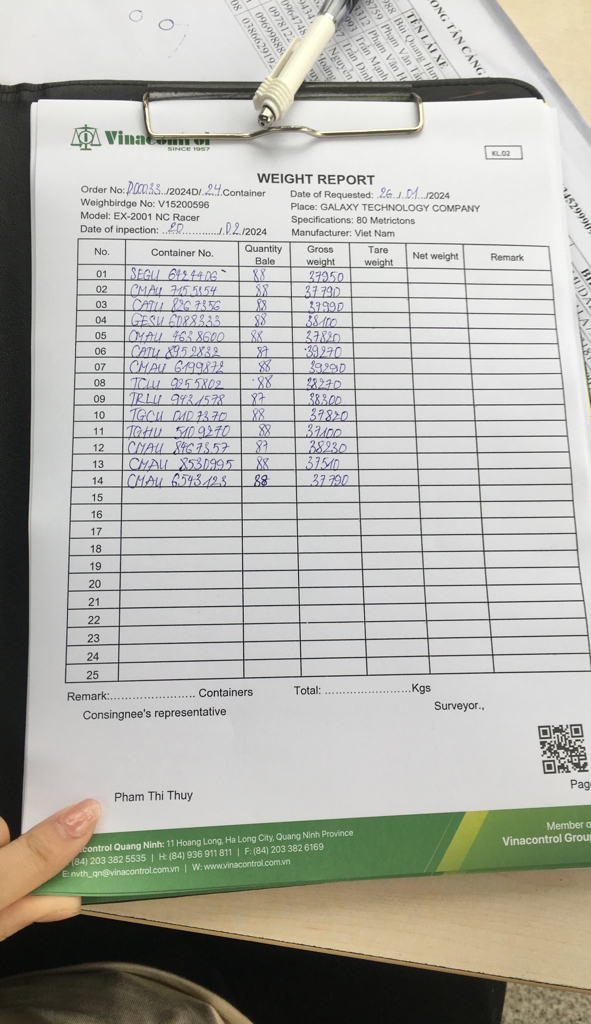 Vinacontrol
SINCE 1957
KL.02
WEIGHT REPORT
Order No: D0033./2024D/.24.Container
Date of Requested: 26./.01../2024
Weighbirdge No: V15200596
Place: GALAXY TECHNOLOGY COMPANY
Model: EX-2001 NC Racer
Specifications: 80 Metrictons
Date of inpection: ..20........../.02./2024
Manufacturer: Viet Nam
No. Container No. Quantity Bale Gross weight Tare weight Net weight Remark
01 SEGU 88 37950
02 CMAU 88 37790
03 CAIU 88 37990
04 GESU 6088333 88 38100
05 CMAU 7638600 88 37820
06 CAIU 8952832 87 39270
07 CMAU 6199872 88 39290
08 TCLU 9255802 88 38270
09 TRLU 9421578 87 38300
10 TGCU 0107370 88 37820
11 TGHU 5109270 88 37100
12 CMAU 8467357 87 38230
13 CMAU 8530995 88 37510
14 CMAU 6543123 88 37790
15
16
17
18
19
20
21
22
23
24
25
Remark:...................... Containers Total: ......................Kgs
Consingnee's representative Surveyor.,
Pham Thi Thuy
Page
control Quang Ninh: 11 Hoang Long, Ha Long City, Quang Ninh Province
(84) 203 382 5535 | H: (84) 936 911 811 | F: (84) 203 382 6169
E: nvth_qn@vinacontrol.com.vn | W: www.vinacontrol.com.vn
Member o
Vinacontrol Group